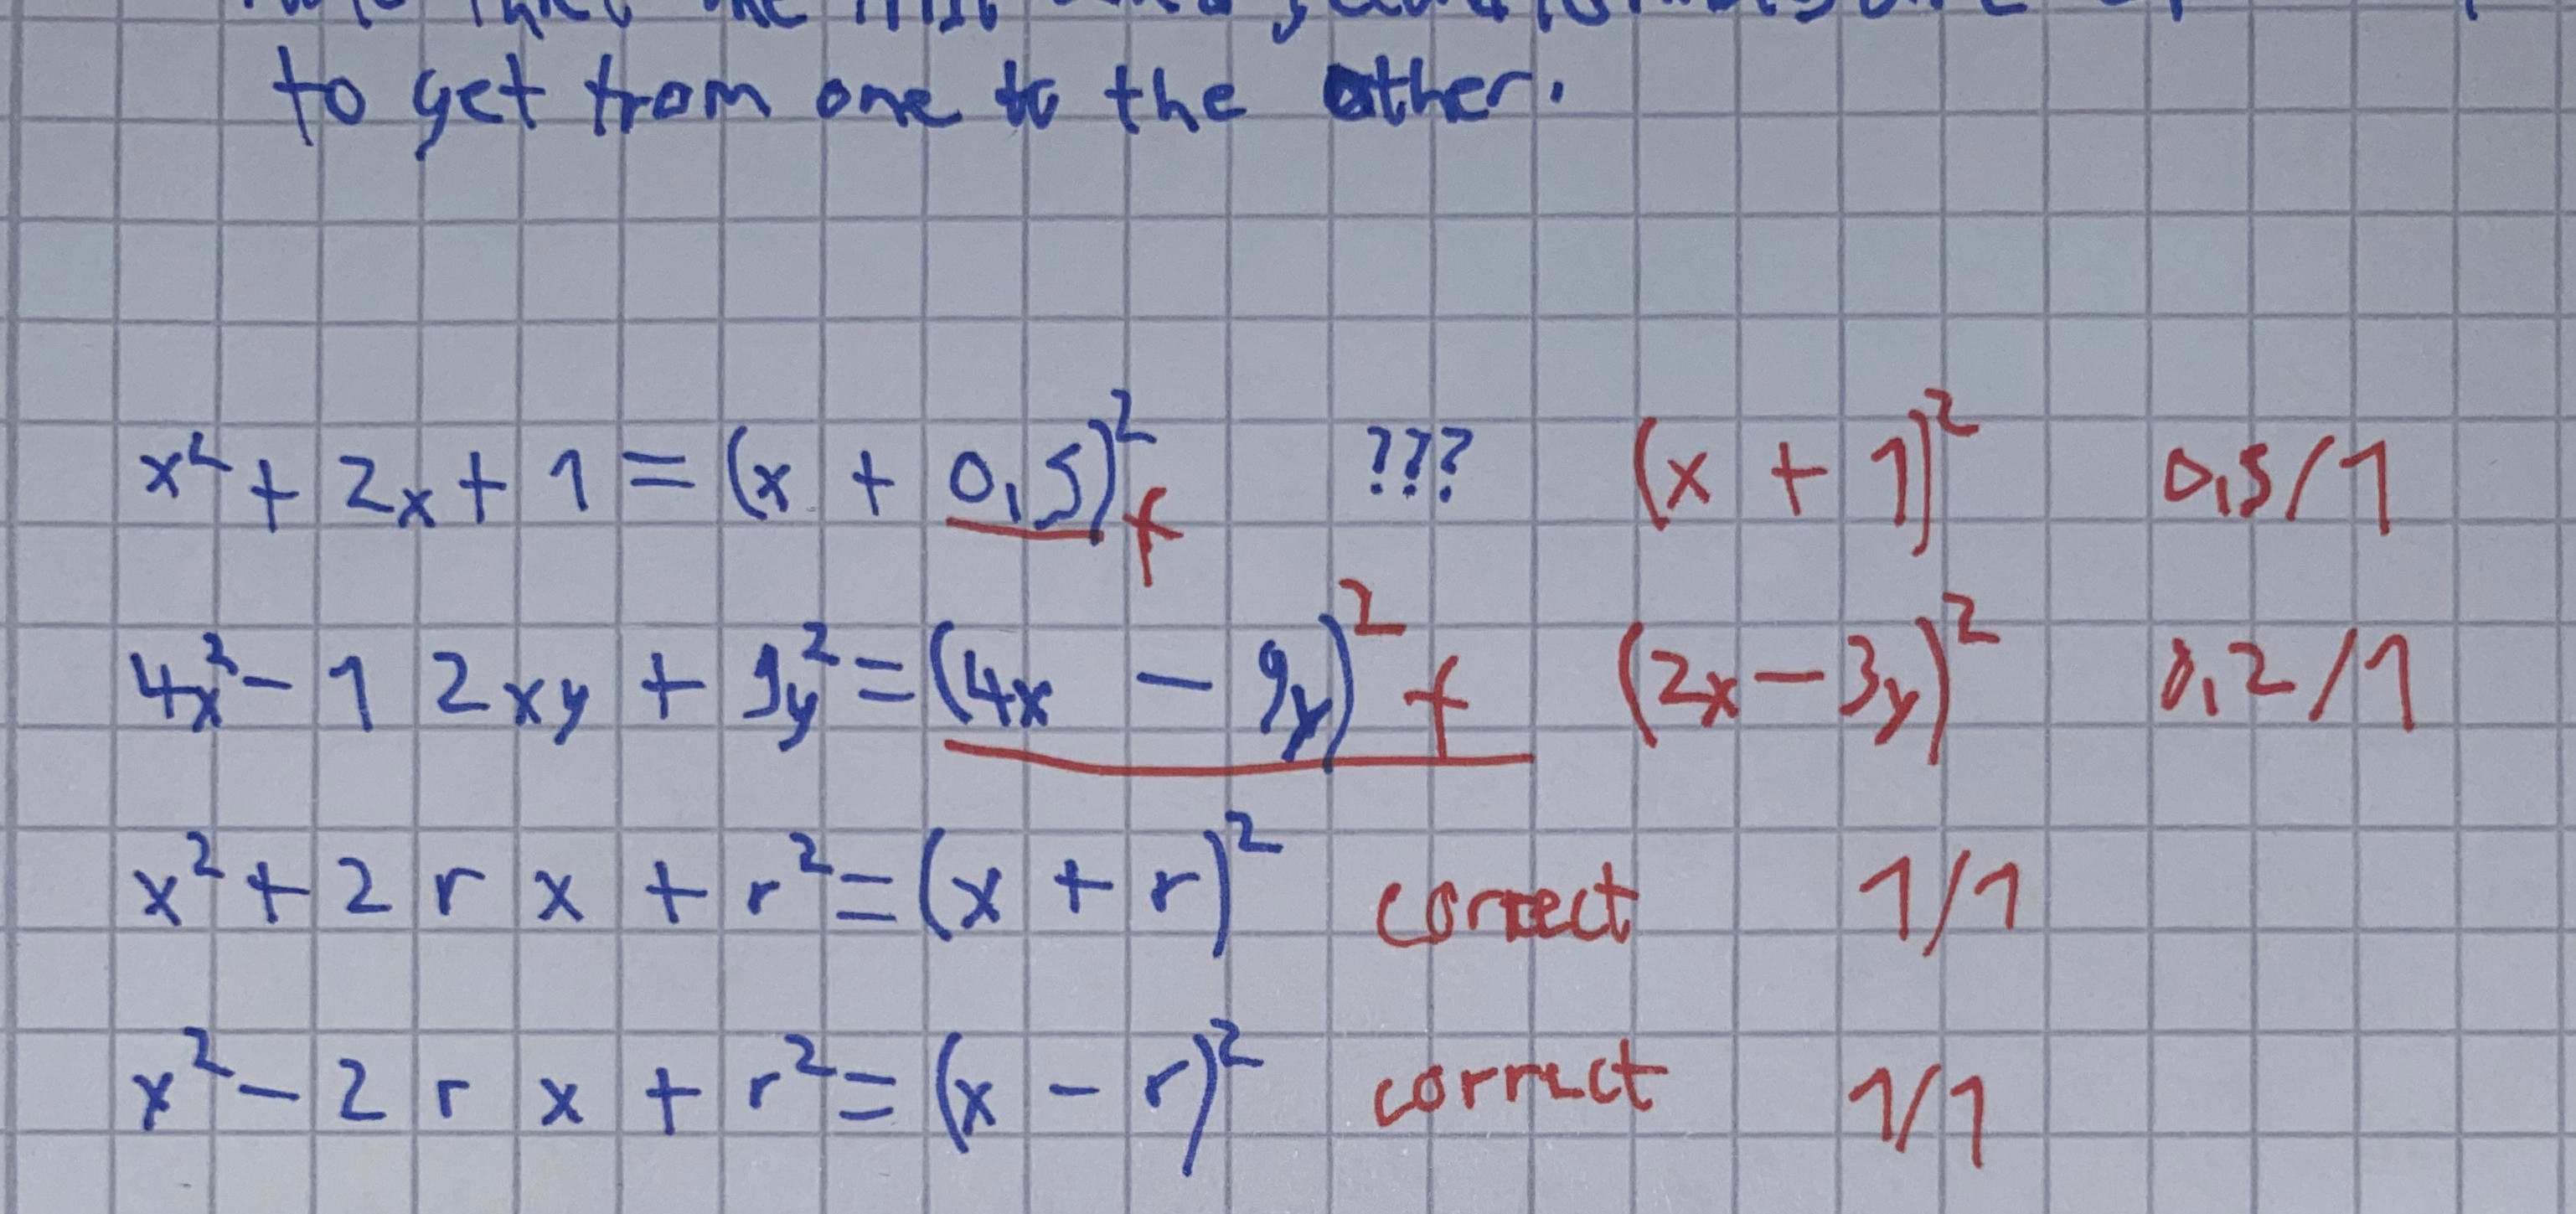 to get from one to the other.
x² + 2x + 1 = (x + 0,5)² f ??? (x + 1)² 0,5/1
4x² - 12xy + 9y² = (4x - 9y)² f (2x - 3y)² 0,2/1
x² + 2rx + r² = (x + r)² correct 1/1
x² - 2rx + r² = (x - r)² correct 1/1